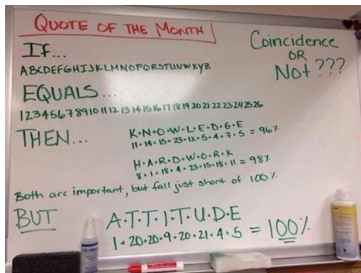 QUOTE OF THE MONTH
Coincidence
OR
Not ???
If...
ABCDEFGHIJKLMNOPQRSTUVWXYZ
EQUALS...
1 2 3 4 5 6 7 8 9 10 11 12 13 14 15 16 17 18 19 20 21 22 23 24 25 26
THEN...
K·N·O·W·L·E·D·G·E
11·14·15·23·12·5·4·7·5 = 96%
H·A·R·D·W·O·R·K
8·1·18·4·23·15·18·11 = 98%
Both are important, but fall just short of 100%
BUT
A·T·T·I·T·U·D·E
1·20·20·9·20·21·4·5 = 100%